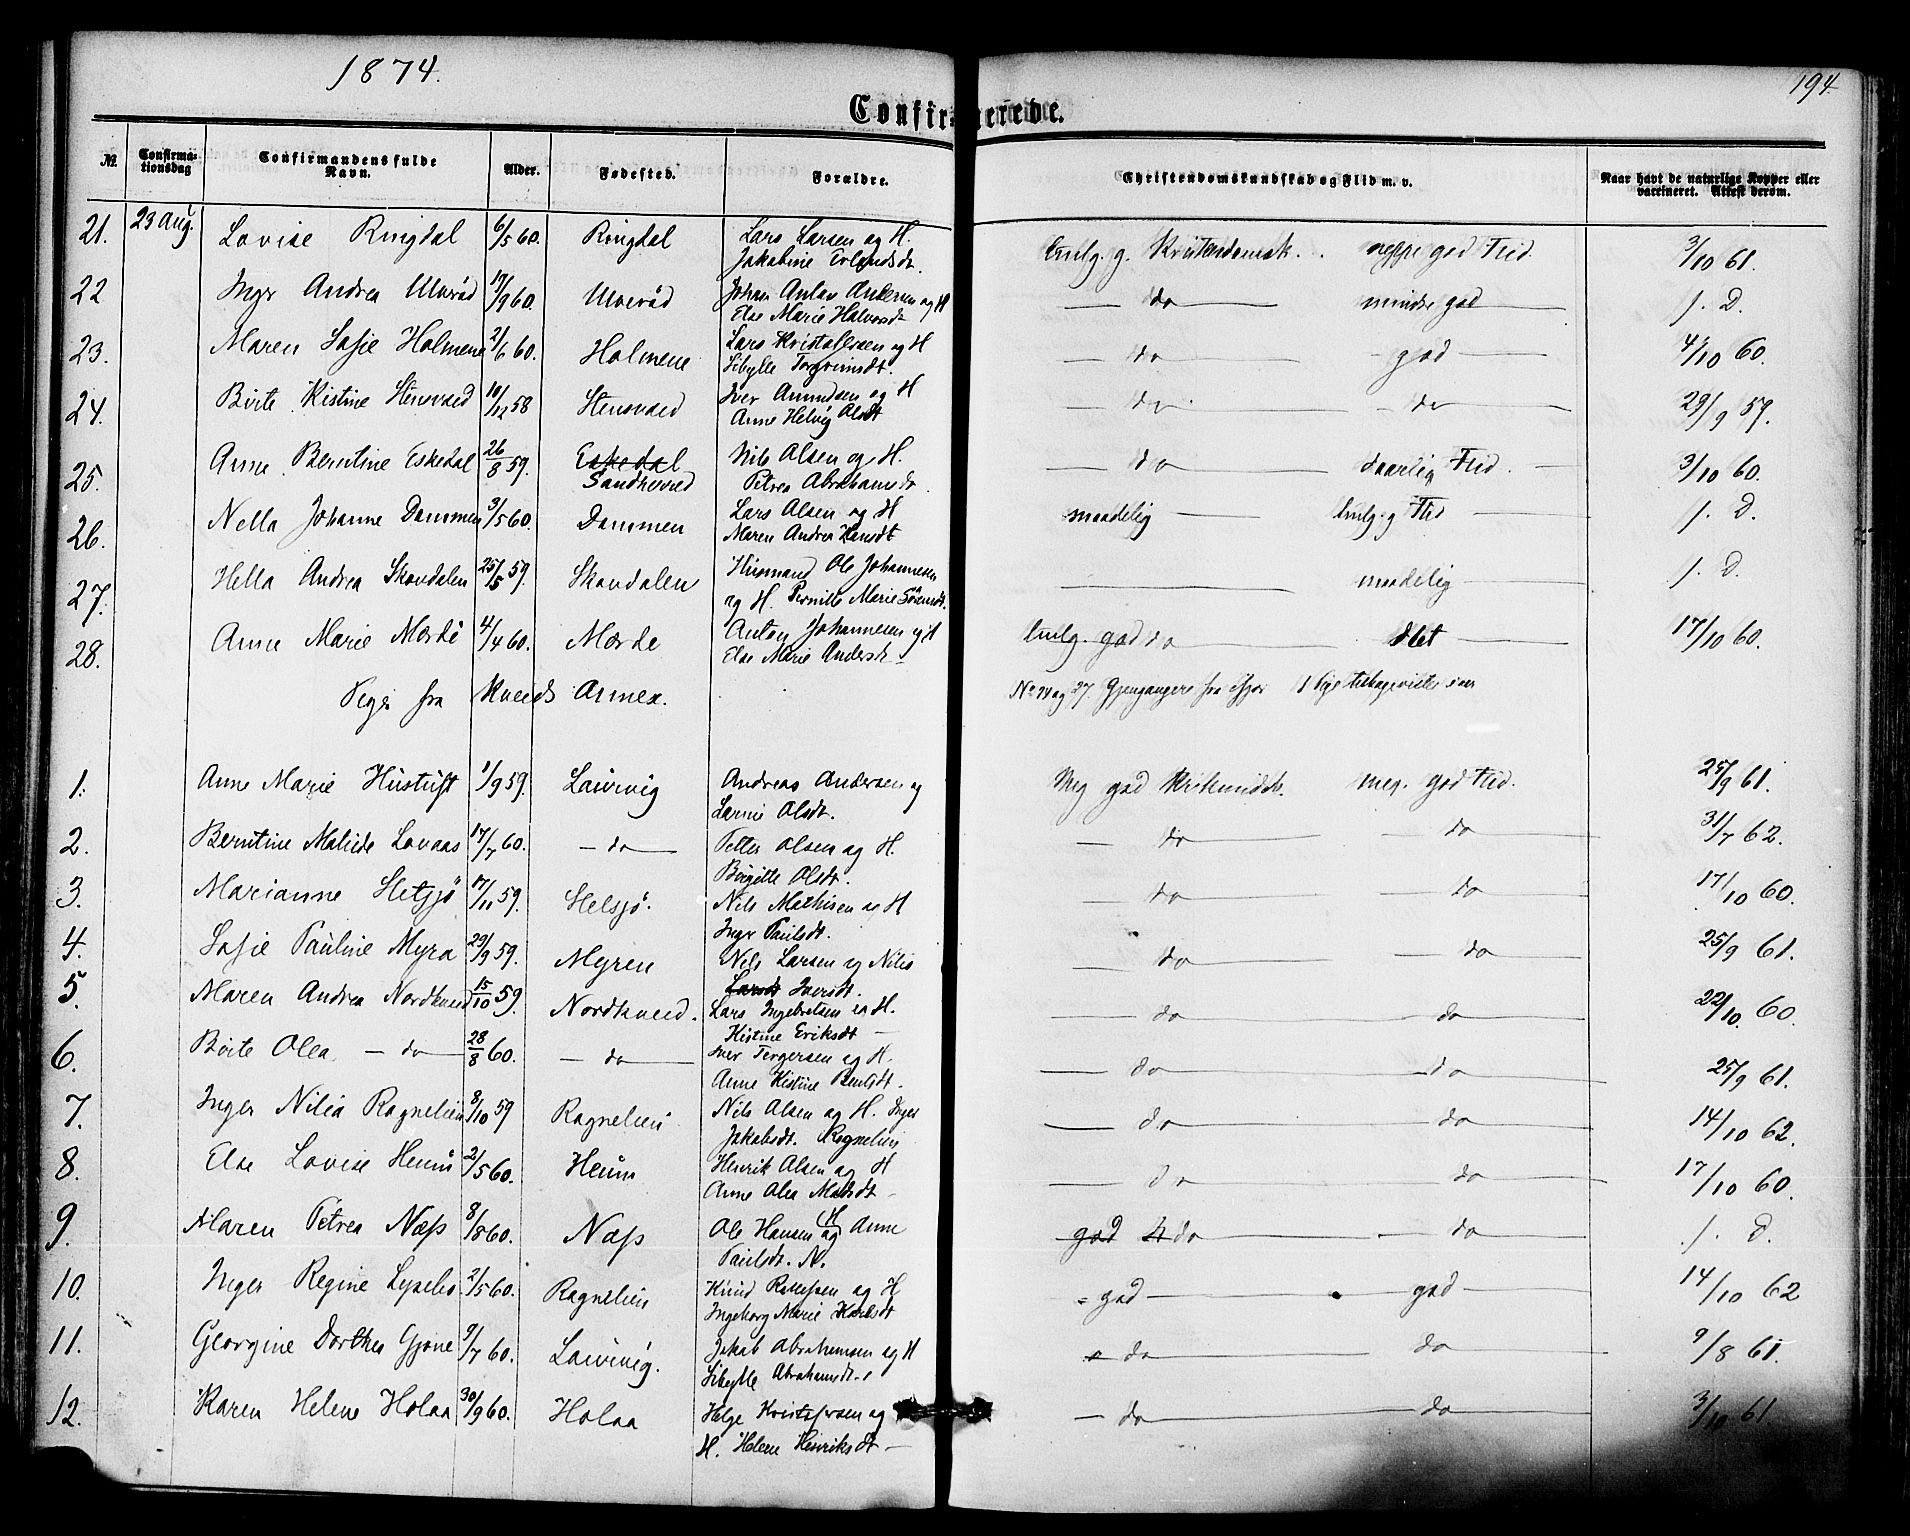 1874.
194.
Confirmerede.
№
Confirmationsdag
Confirmandens fulde Navn.
Alder.
Fødested.
Forældre.
Christendomskundskab og Flid m. v.
Naar havt de naturlige Kopper eller vaccineret. Attest derom.
21. 23 Aug. Lovise Ringdal 6/5 60. Ringdal Lars Larsen og H. neppe god Flid. 3/10 61.
Jakobine Erlandsdt.
22 Inger Andrea Ulverød 17/9 60. Ulverød Johan Anton Andersen og H — do — mindre god — s. D.
Else Marie Halvorsdt
23. Maren Sofie Holmene 2/6 60. Holmene Lars Kristofersen og H — do — god — 4/10 60.
Sibylle Torgrimsdt.
24. Birte Kistine Stensved 10/12 58 Stensved Iver Amundsen og H — do — do — 29/9 59.
Anne Helvig Olsdt
25. Anne Berntine Eskedal 26/8 59. Eskedal Nils Olsen og H. — do — daarlig Flid. — 3/10 60.
Petrea Abrahamsdt.
26. Nella Johanne Dammen 3/5 60. Dammen Lars Olsen og H maadelig — Flid — s. D.
Maren Andrea Hansdt
27. Hella Andrea Skovdalen 25/5 59. Skovdalen Husmand Ole Johannesen — maadelig — s. D.
og H. Pernille Marie Sørensdt.
28. Anne Marie Mørde 4/4 60. Mørde Anton Johannesen og H god do — slet — 17/10 60.
Else Marie Andersdt —
Piger fra Kvelds Annex.
og 27. Gjengangere fra
1. Anne Marie Hustuft 1/9 59. Laurvig Andreas Andersen og Meg god meg. god Flid. 25/9 61.
Olsdt.
2. Berntine Matilde Lovaas 17/7 60. — do — Petter Olsen og H. — do — do — 31/7 62.
Birgitte Olsdt.
3. Marianne Helsjö 17/11 59. Helsjö. Nils Mathisen og H — do — do — 17/10 60.
Inger Paulsdt.
4. Sofie Pauline Myra 29/9 59. Myren Nils Larsen og Nilia — do — do — 25/9 61.
Larsdt Iversdt.
5. Maren Andrea Nordkveld 15/10 59. Nordkveld. Lars Ingebretsen og H. — do — do — 22/10. 60.
Kistine Eriksdt —
6. Birte Olea — do — 28/8 60. — do — Iver Torgersen og H. — do — do — 25/9 61.
Anne Kistine Bentsdt.
7. Inger Nilia Ragnelien 8/10 59 Ragnelien Nils Olsen og H. Inger — do — do — 14/10 62.
Jakobsdt. Ragnelien
8. Else Lovise Heum 2/5 60. Heum Henrik Olsen og H — do — do — 17/10 60.
Anne Olea Matsdt —
9. Maren Petrea Næss 8/8 60. Næss Ole Hansen og H Anne god do — do — s. D.
Paulsdt. N.
10. Inger Regine Lysebo 2/5 60. Ragnelien Knud og H god — god — 14/10 62
Ingeborg Marie Karlsdt
11. Georgine Dorthea Gjone 9/7 60. Laurvig. Jakob Abrahamsen og H do — do — 9/8 61.
Sibylle Abrahamsdt.
12. Karen Helene Holaa 30/9 60. Holaa Helge Kristofersen og — do — do — 3/10 61
H. Helene Henriksdt —